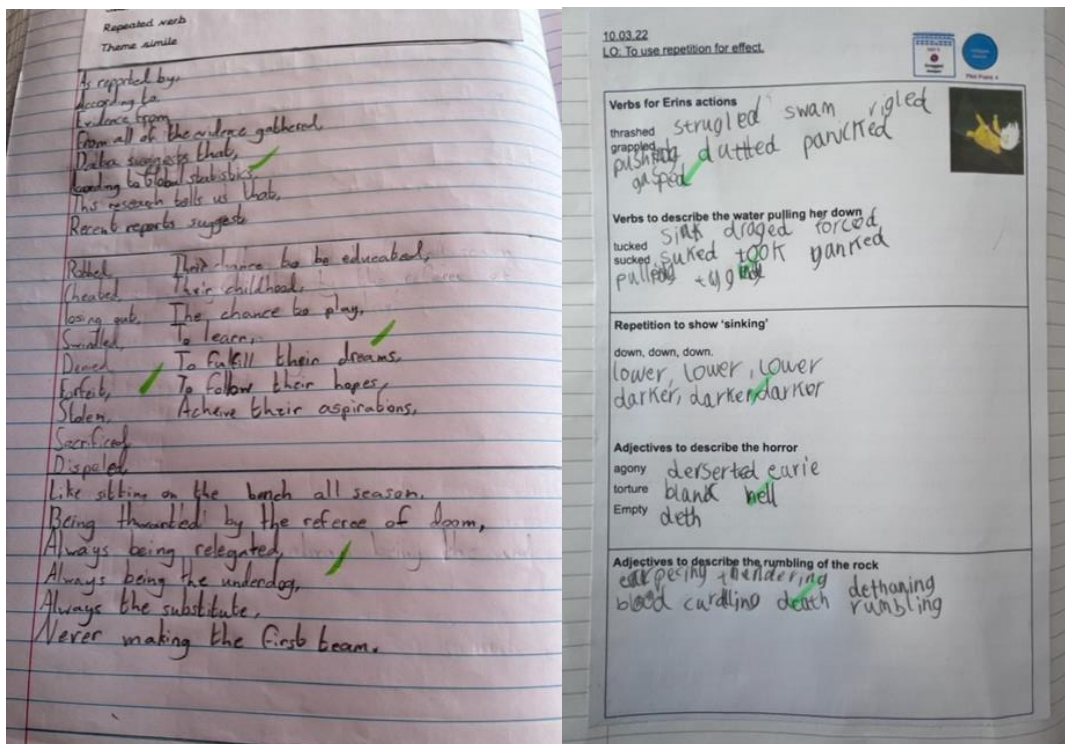 Repeated verb
Theme simile
As reported by,
According to
Evidence from
From all of the evidence gathered,
Data suggests that,
to Global statistics,
This research tells us that,
Recent reports suggest
Robbed Their chance to be educated,
Cheated Their childhood,
losing out, The chance to play,
Swindled To learn,
Denied To fulfill their dreams,
Forfeit, To follow their hopes,
Stolen, Acheive their aspirations,
Sacrificed
Dispeled
Like sitting on the bench all season,
Being thwarted by the referee of doom,
Always being relegated,
Always being the underdog,
Always the substitute,
Never making the first team.
10.03.22
LO: To use repetition for effect.
Plot Point 4
Verbs for Erins actions
thrashed strugled swam rigled
grappled
dutted panicked
gasped
Verbs to describe the water pulling her down
sink draged forced
tucked
sucked suked took yanked
Repetition to show 'sinking'
down, down, down.
lower, lower, lower
darker, darker darker
Adjectives to describe the horror
agony derserted earie
torture blank hell
Empty deth
Adjectives to describe the rumbling of the rock
thendering dethaning
blood curdling death rumbling